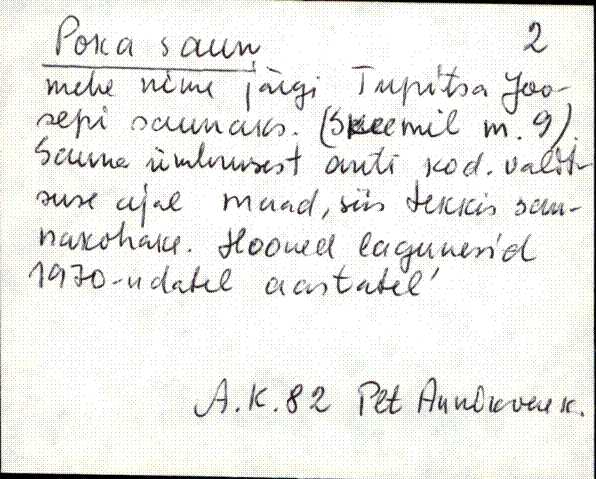 Poka saun 2
mehe nime järgi Tupitsa Joo-
sepi saunaks. (Skeemil m. 9)
Sauna ümbrusest anti kod. valit-
suse ajal maad, siis tekkis sau-
nakohake. Hooned lagunesid
1970-ndatel aastatel
A.K.82 Plt